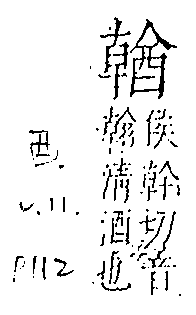 侯幹切音
翰清酒也
酉.
v.11.
P112